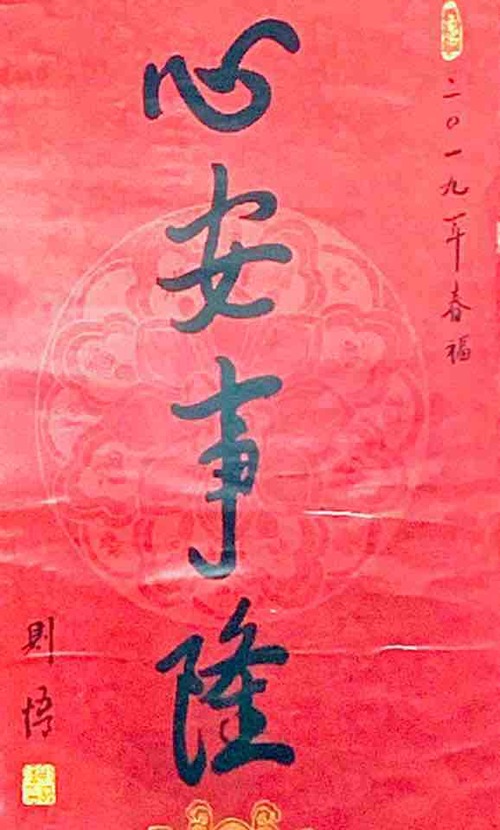 二〇一九年春福
心安事隆
則悟